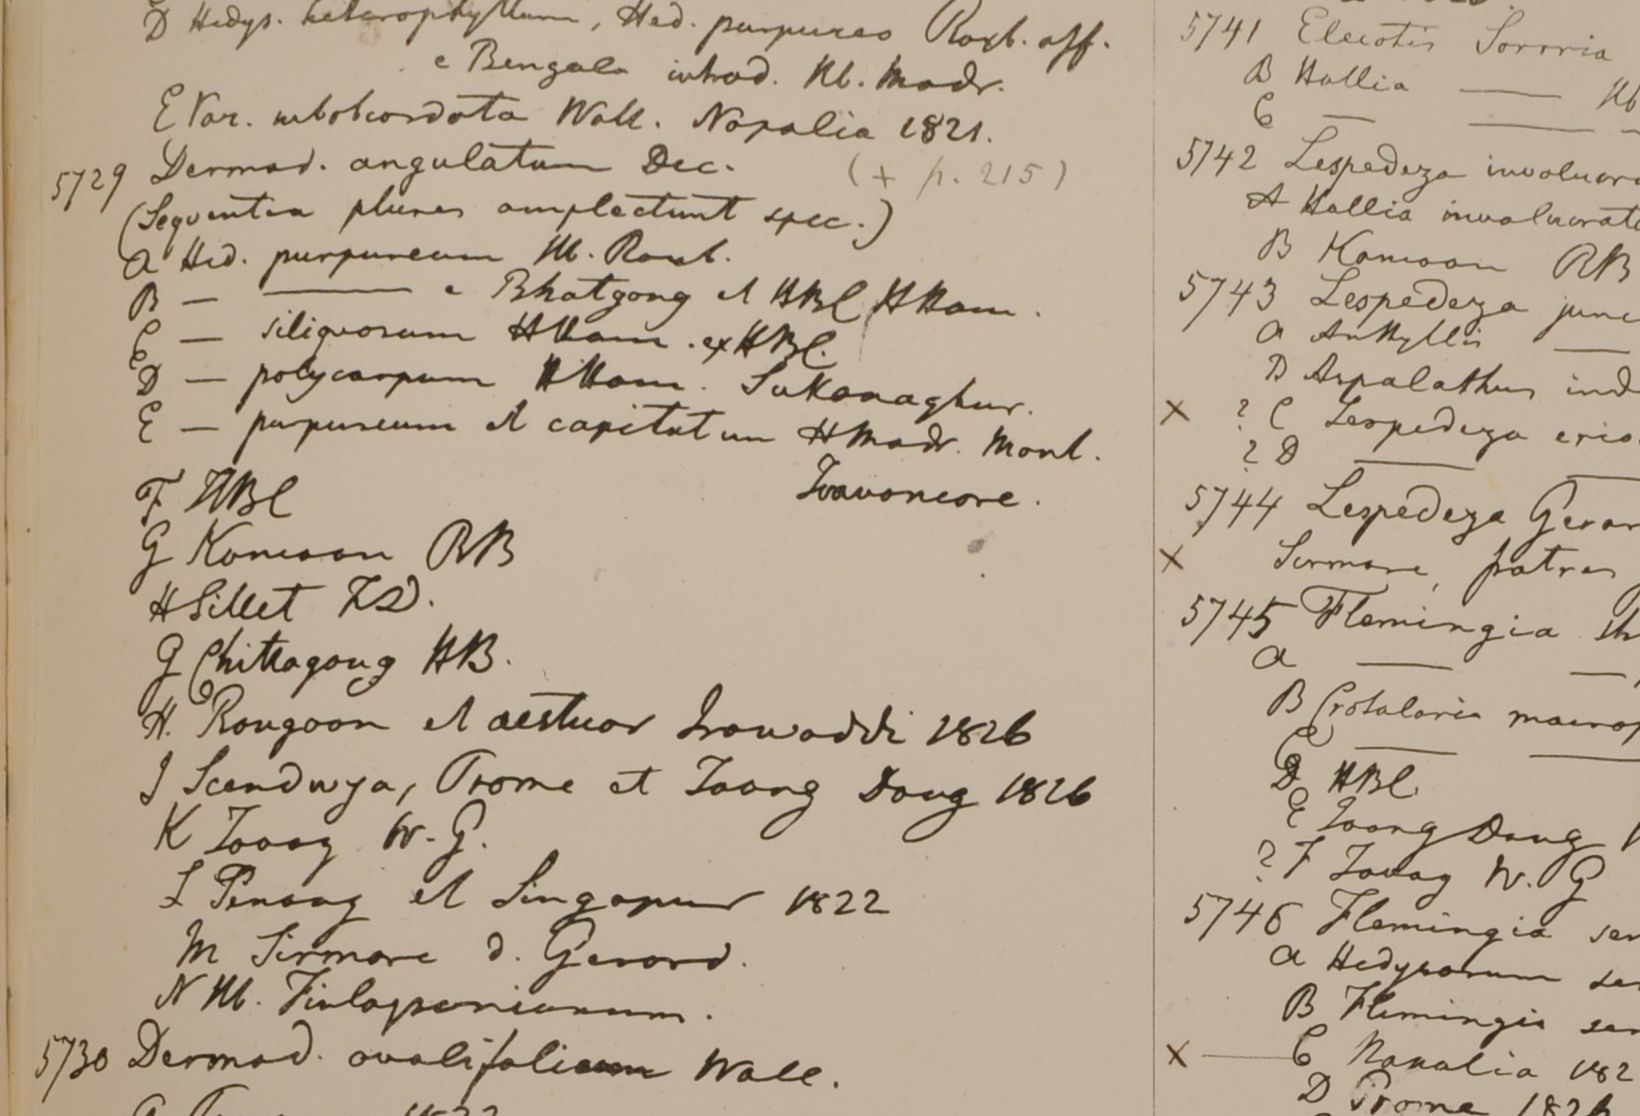 D Hedys. heterophyllum, Hed. purpureo Roxb. aff.
e Bengala introd. Hb. Madr.
E Var. subobcordata Wall. Napalia 1821.
5729 Desmod. angulatum Dec. (+ p. 215)
(Sequentia plures amplectunt spec.)
a Hed. purpureum Hb. Roxb.
B — —— e Bhatgong et HBC HHam.
C — siliquosum HHam. ex HBC.
D — polycarpum HHam. Sukanaghur.
E — purpureum et capitatum HMadr. Mont.
Travancore.
F HBC
G Kamaon RB
H Sillet FD.
G Chittagong HB.
H. Rangoon et aestuar Irawaddi 1826
J Scendwya, Prome et Taong Dong 1826
K Tavoy W. G.
L Penang et Singapur 1822
M Sirmore d. Gerard.
N Hb. Finlaysonianum.
5730 Desmod. ovalifolium Wall.
1822
5741 Eleiotis Sororia
B Hallia —— Hb
C — ——
5742 Lespedeza involucra
A Hallia involucrat
B Kamaon RB
5743 Lespedeza junc
a Anthyllis ——
B Aspalathus ind
× ? C Lespedeza erio
? D ——
5744 Lespedeza Gerar
× Sirmore, patres
5745 Flemingia
a —— —
B Crotalaria macrop
C —— ——
D HBC
E Taong Dong
? F Tavoy W. G
5746 Flemingia sem
a Hedysarum se
B Flemingia sem
× — C Napalia 182
D Prome 1826